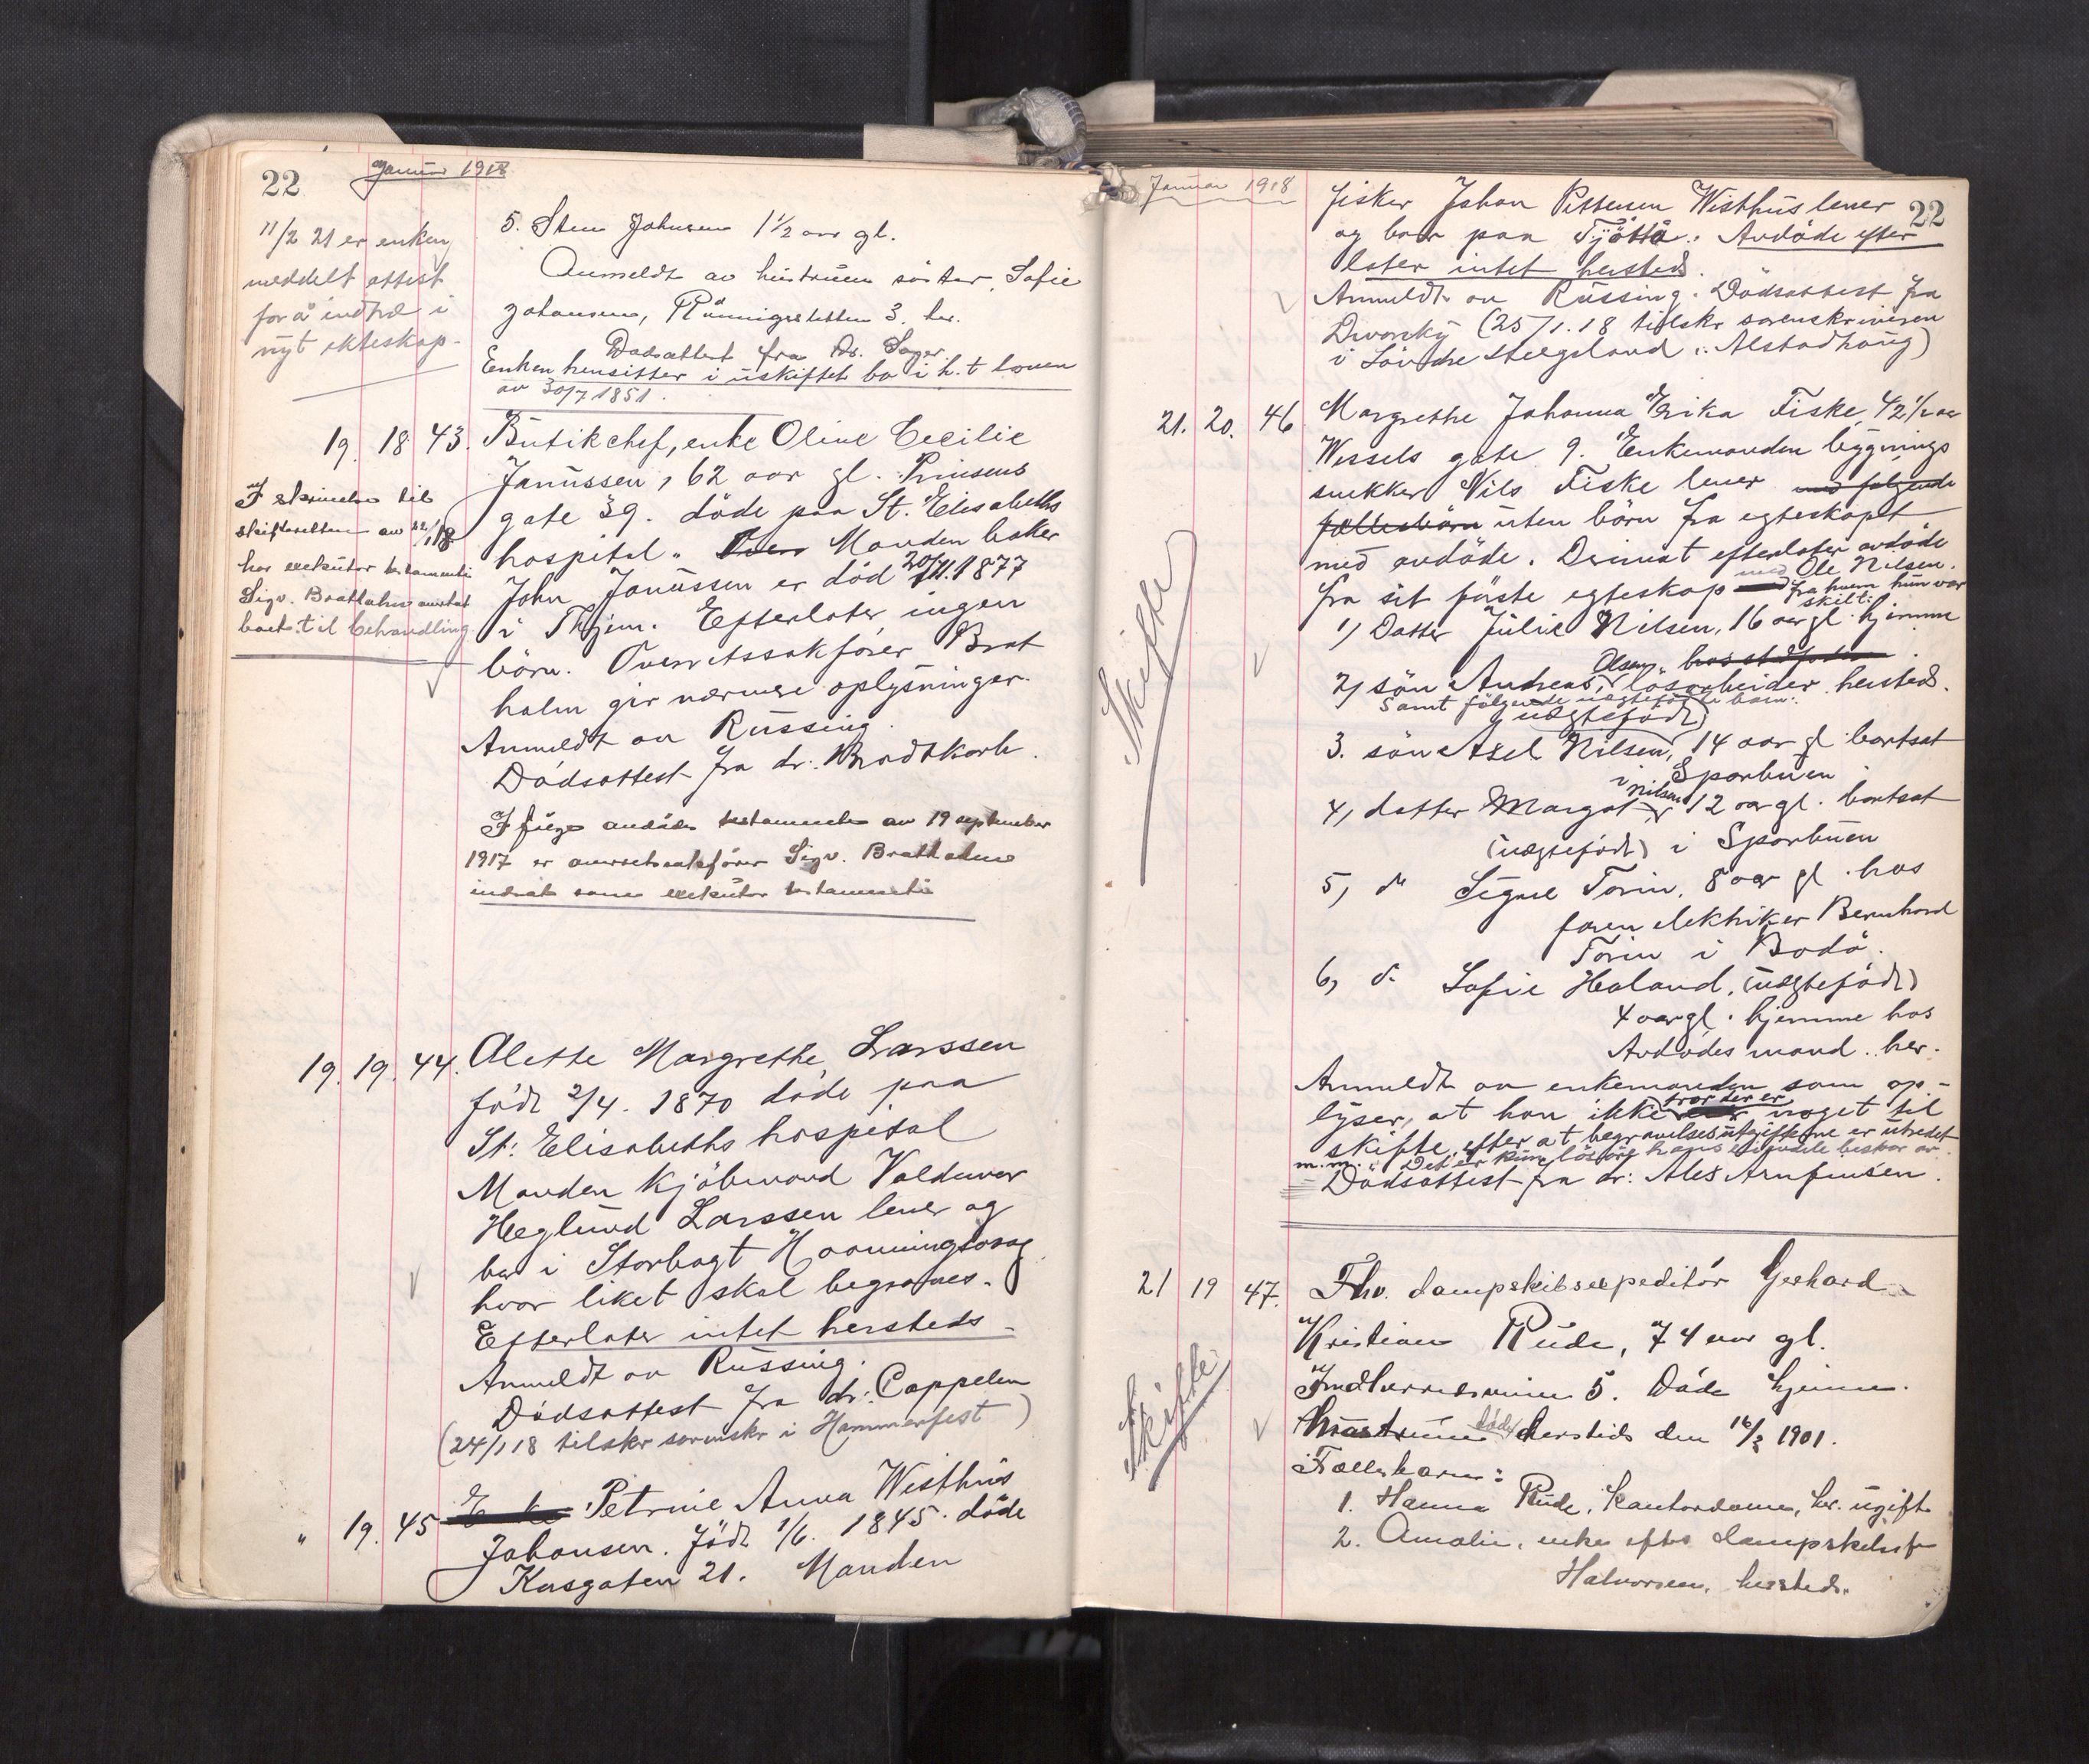 22
Januar 1918
11/2 21 er enken
meddelt attest
for å indtræ i
nyt ekteskap.
5. Sten Johnsen 1 1/2 aar gl.
Anmeldt av hustruens söster, Sofie
Johansen, Rönnigsletten 3. her.
Dødsattest fra Dr.
Enken hensitter i uskiftet bo i h.t loven
av 30/7 1851.
19. 18 43. Butikchef, enke Oline Cecilie
Janussen, 62 aar gl. Prinsens
gate 39. döde paa St. Elisabeths
hospital. Manden bisker
John Janussen er död 20/11.1877
i Thjem. Efterlater ingen
börn. Overretssakförer Brat
holm gir nærmere oplysninger.
Anmeldt av Russing.
Dödsattest fra dr. Brodtkorb.
I skrivelse til
skifteretten av 22/1 18
har executor testamenti
Sigv. Bratholm anmeldt
boet til behandling.
Ifölge avdödes testamente av 19 september
1917 er overretssakförer Sigv. Bratholm
indsat som executor testamenti
19. 19. 44. Alette Margrethe Larssen
född 2/4. 1870 döde paa
St. Elisabeths hospital
Manden Kjöbmand Valdemar
Heglund Larssen lever og
bor i Storbugt Honningsvaag
hvor liket skal begraves.
Efterlater intet hersteds.
Anmeldt av Russing.
Dödsattest fra dr. Cappelen
(24/1 18 tilskr sorenskr i Hammerfest)
" 19. 45 Enke Petrine Anna Wisthus
Johansen. född 1/6. 1845. döde
Kirsgaten 21. Manden
Januar 1918
22
fisker Johan Pettersen Wisthus lever
og bor paa Tjöttö. Avdöde efter
later intet hersteds.
Anmeldt av Russing. Dödsattest fra
Dworsky (25/1.18 tilskr sorenskriveren
i Söndre Helgeland, Alstadhaug)
21. 20. 46 Margrethe Johanna Erika Fiske, 42 1/2 aar
Wessels gate 9. Enkemanden bygnings
snekker Nils Fiske lever med følgende
fællesbörn uten börn fra egteskapet
med avdöde. Derimot efterlater avdöde
fra sit förste egteskap med Ole Nilsen.
fra hvem hun var
skilt:
1) Datter Julie Nilsen, 16 aar gl. hjemme
hos stedfader.
2) sön Andreas Olsen, lösarbeider hersteds.
Samt fölgende uegtefödte barn:
(uegtefödt)
3. sön Axel Nilsen, 14 aar gl bortsat
i Sparbuen
4, datter Margot Nilsen 12 aar gl. bortsat
(uegtefödt) i Sparbuen
5, d. Signe Torin, 8 aar gl. hos
faren elektriker Bernhard
Torin i Bodö.
6, d. Sofie Haland, (uegtefödt)
4 aar gl. hjemme hos
Avdödes mand. her.
Anmeldt av enkemanden som op-
lyser, at han ikke tror der er noget til
skifte, efter at begravelsesutgifterne er utredet
m.m. Det er kun lösöre hans eiendele bestaar av.
Dödsattest fra dr: Alas Arnfinsen.
Skifte
21 19 47. Fhv. dampskibsexpeditör Gerhard
Kristian Rude, 74 aar gl.
Indherredsveien 5. Döde hjemme.
Hustruen döde hersteds den 16/3 1901.
Fællesbarn:
1. Hanna Rude, kontordame, her. ugift
2. Amalie, enke efter dampskibsf
Halvorsen, hersteds.
Skifte